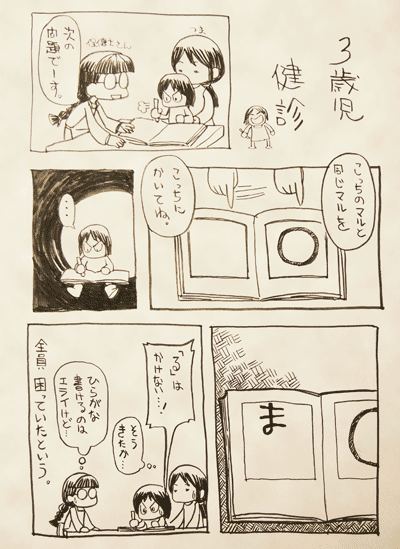 3歳児
健診
つま
保健士さん
次の
問題でーす。
こっちのマルと
同じマルを
こっちに
かいてね。
・・・
ま
「る」は
かけない…!
そう
きたか…
ひらがな
書けるのは
エライけど…
全員、困っていたという。